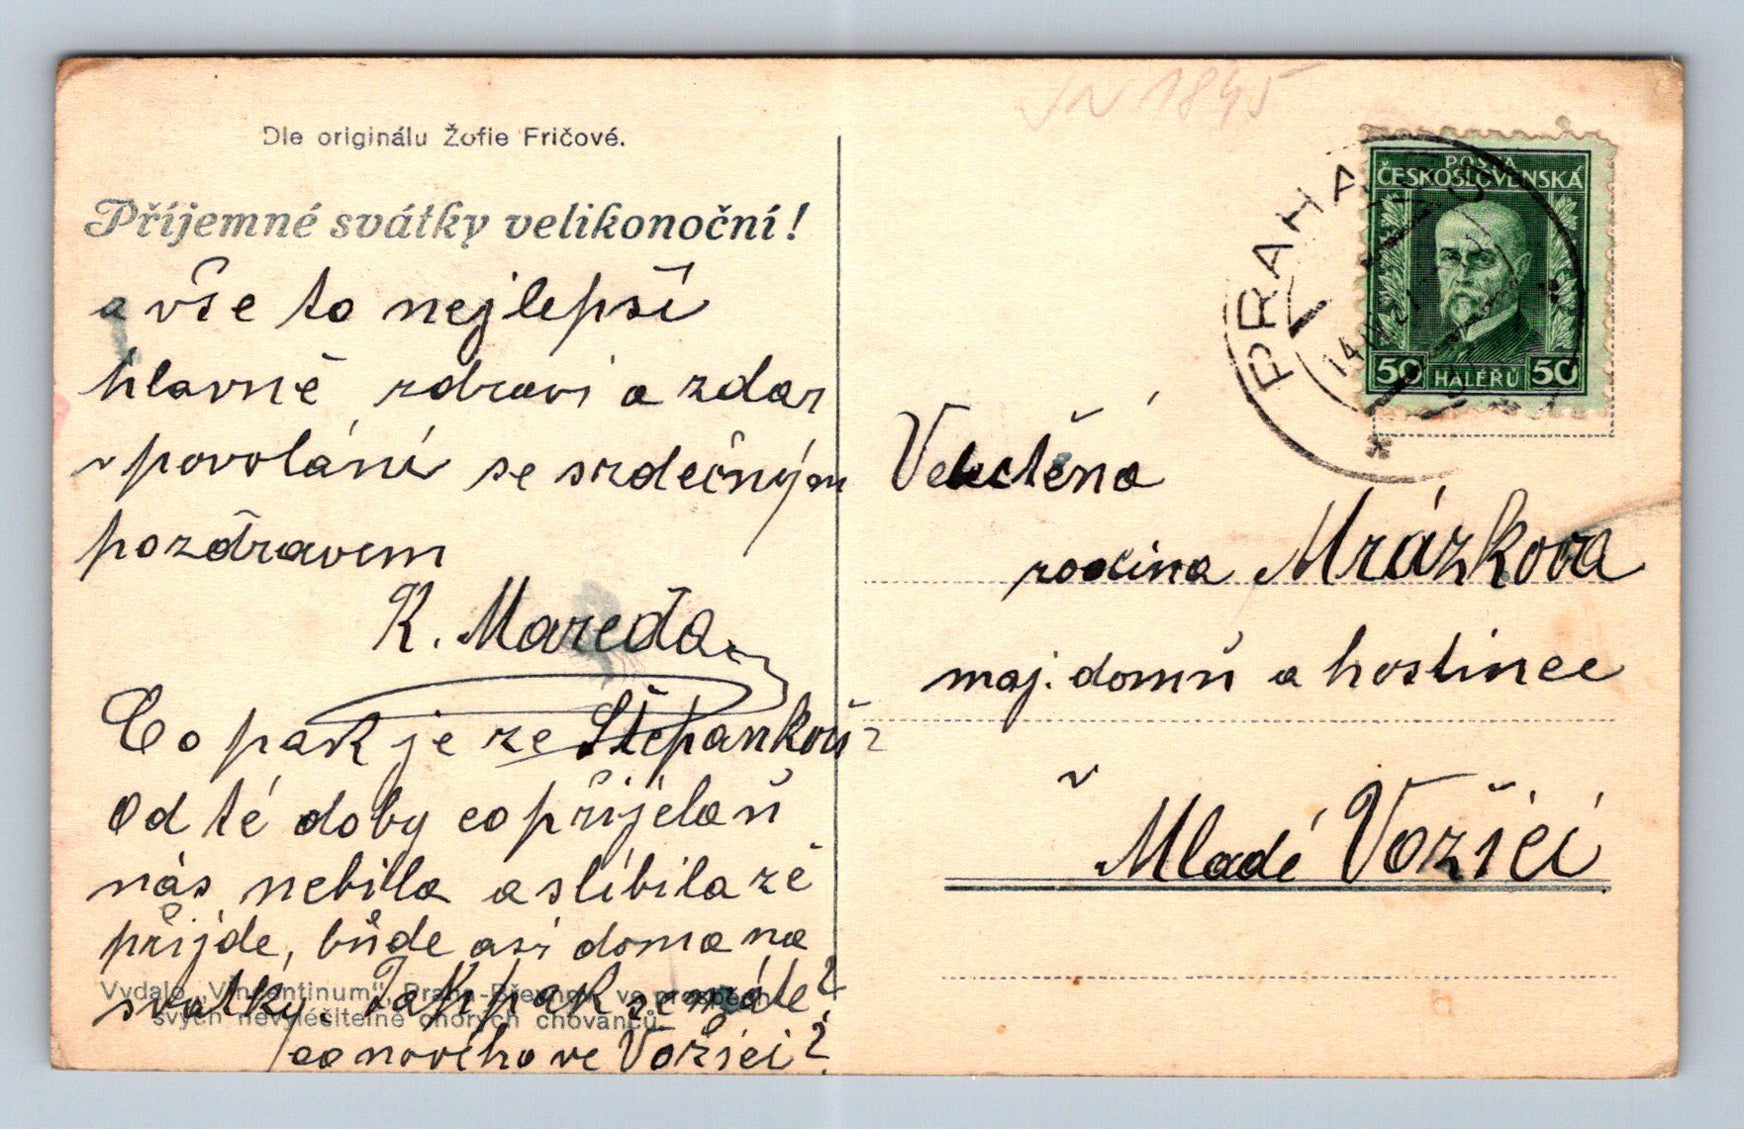 Dle originálu Žofie Fričové.
Příjemné svátky velikonoční!
a vše to nejlepší
hlavně zdraví a zdar
v povolání se srdečným
pozdravem
K. Mareda
Co pak je ze Štěpankou?
Od té doby co přijela ň
nás nebilla a slíbila zě
přijde, bůde asi doma na
svatky. Tak pak se máte?
co nového ve Vožici?
Vydalo „Vincentinum", Praha-Břevnov, ve prospěch
svých nevyléčitelně chorých chovanců.
JN 1845
POŠTA
ČESKOSLOVENSKÁ
50 HALÉŘŮ 50
PRAHA
14 IV 27
Velectěná
rodina Mrázkova
maj. domů a hostince
v
Mladé Vožici